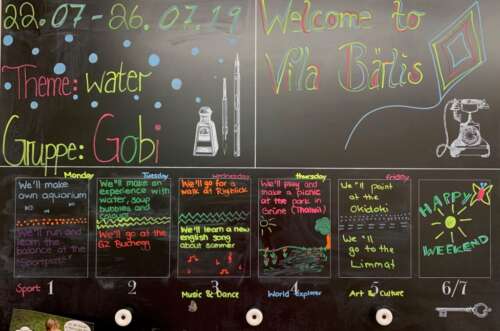 22.07 - 26.07.19
Theme: water
Gruppe: Gobi
Welcome to
Villa Bärlis
Monday
Tuesday
Wednesday
thursday
friday
We'll make
own aquarium
We'll run and
learn the
balance at the
Sportpark
We'll make an
experience with
water, soup
bubbles and
We'll go at the
GZ Buchegg
We'll go for a
walk at
We'll learn a new
english song
about summer
We'll play and
make a picnic
at the park in
Grüne (Thalwil)
We'll paint
at the
Okidoki
We'll
go to the
Limmat
HAPPY
WEEKEND
1
2
3
4
5
6/7
Sport
Music & Dance
World Explorer
Art & Culture